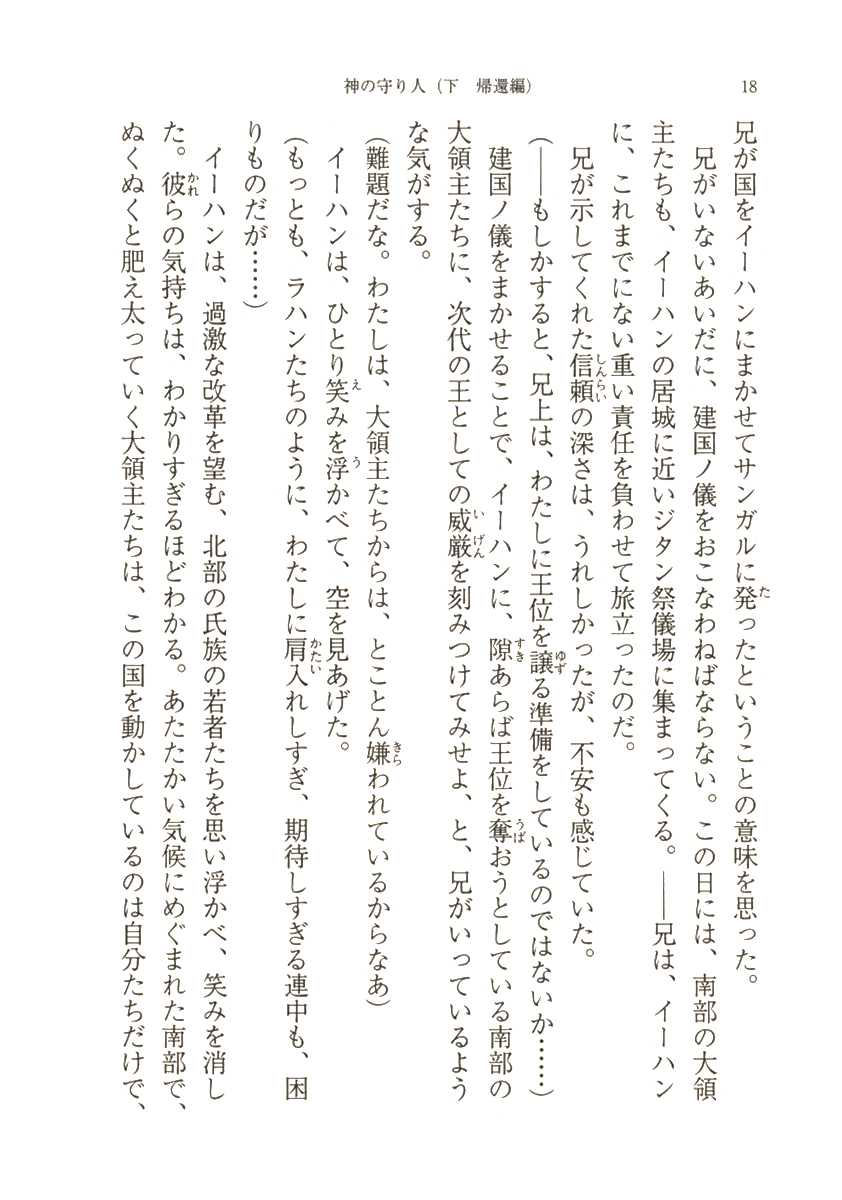 神の守り人（下　帰還編）
18
兄が国をイーハンにまかせてサンガルに発ったということの意味を思った。
　兄がいないあいだに、建国ノ儀をおこなわねばならない。この日には、南部の大領
主たちも、イーハンの居城に近いジタン祭儀場に集まってくる。――兄は、イーハン
に、これまでにない重い責任を負わせて旅立ったのだ。
　兄が示してくれた信頼の深さは、うれしかったが、不安も感じていた。
（――もしかすると、兄上は、わたしに王位を譲る準備をしているのではないか……）
　建国ノ儀をまかせることで、イーハンに、隙あらば王位を奪おうとしている南部の
大領主たちに、次代の王としての威厳を刻みつけてみせよ、と、兄がいっているよう
な気がする。
（難題だな。わたしは、大領主たちからは、とことん嫌われているからなあ）
　イーハンは、ひとり笑みを浮かべて、空を見あげた。
（もっとも、ラハンたちのように、わたしに肩入れしすぎ、期待しすぎる連中も、困
りものだが……）
　イーハンは、過激な改革を望む、北部の氏族の若者たちを思い浮かべ、笑みを消し
た。彼らの気持ちは、わかりすぎるほどわかる。あたたかい気候にめぐまれた南部で、
ぬくぬくと肥え太っていく大領主たちは、この国を動かしているのは自分たちだけで、